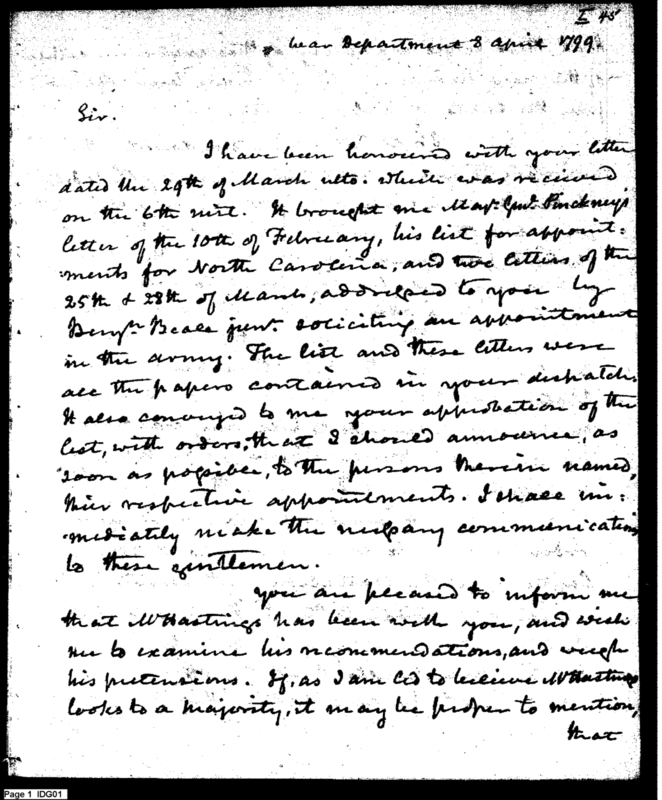 I 45
War Department 8 April 1799.
Sir.
I have been honoured with your letter
dated the 29th of March ulto. which was received
on the 6th inst. It brought me Majr. Genl. Pinckney's
letter of the 10th of February, his list for appoint:
:ments for North Carolina, and two letters of the
25th & 28th of March, addressed to you by
Benjn. Beale junr. soliciting an appointment
in the army. The list and these letters were
all the papers contained in your dispatch.
It also conveyed to me your approbation of the
list, with orders, that I should announce, as
soon as possible, to the persons therein named,
their respective appointments. I shall im:
:mediately make the necessary communication
to these gentlemen.
You are pleased to inform me
that Mr Hastings has been with you, and wish
me to examine his recommendations, and weigh
his pretensions. If, as I am led to believe Mr Hastings
looks to a majority, it may be proper to mention,
that
Page 1 IDG01